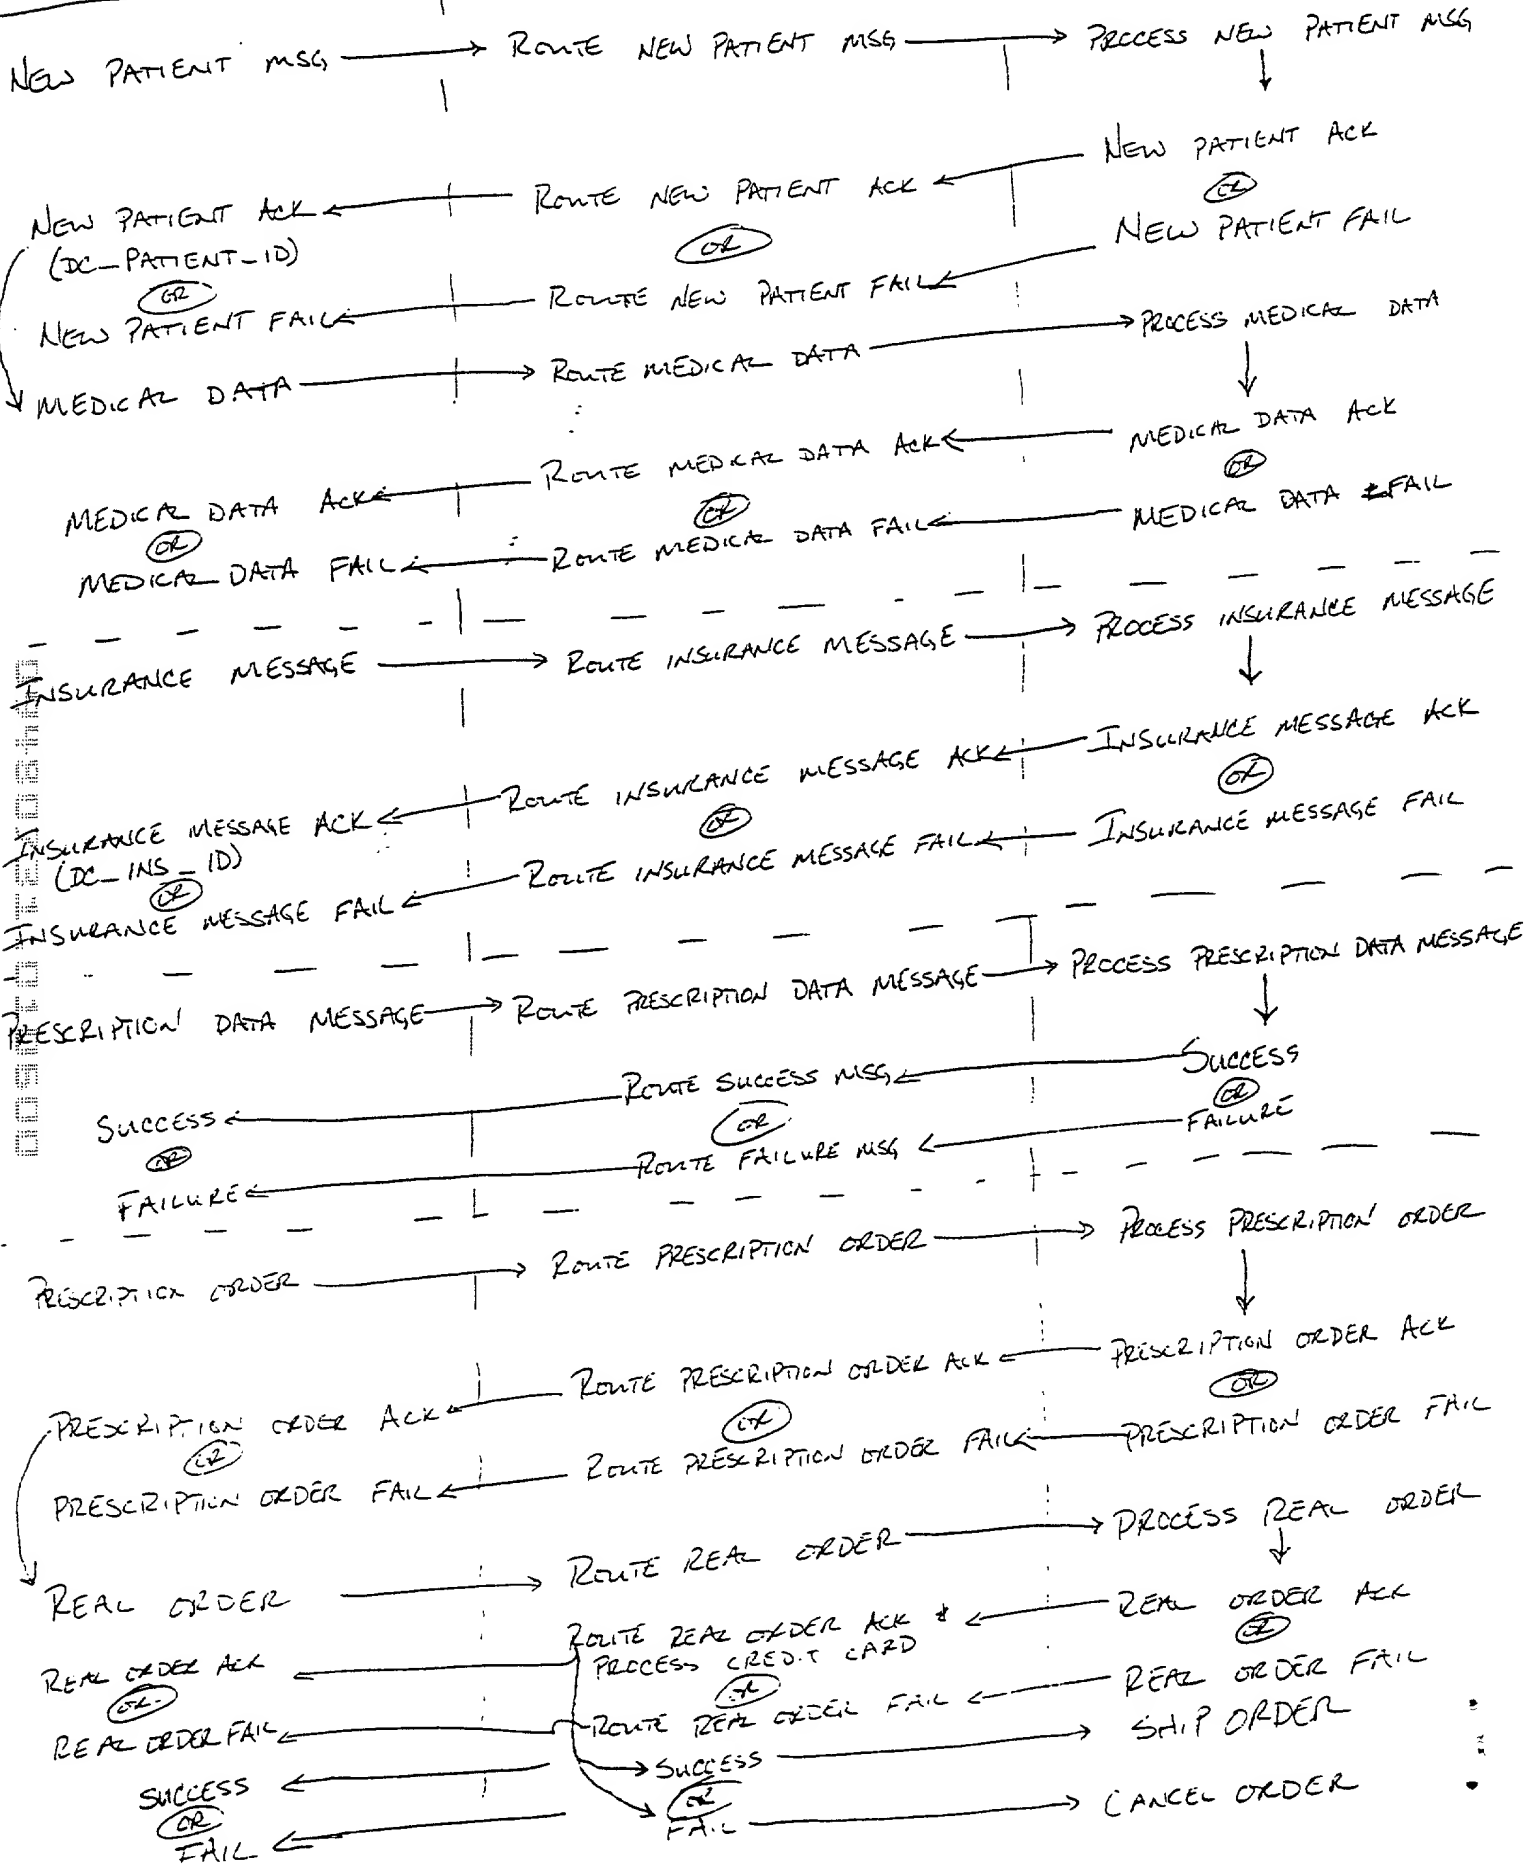 NEW PATIENT MSG → ROUTE NEW PATIENT MSG → PROCESS NEW PATIENT MSG
NEW PATIENT ACK
OR
NEW PATIENT FAIL
ROUTE NEW PATIENT ACK
OR
ROUTE NEW PATIENT FAIL
NEW PATIENT ACK
(DC_PATIENT_ID)
OR
NEW PATIENT FAIL
MEDICAL DATA → ROUTE MEDICAL DATA → PROCESS MEDICAL DATA
MEDICAL DATA ACK
OR
MEDICAL DATA FAIL
ROUTE MEDICAL DATA ACK
OR
ROUTE MEDICAL DATA FAIL
MEDICAL DATA ACK
OR
MEDICAL DATA FAIL
INSURANCE MESSAGE → ROUTE INSURANCE MESSAGE → PROCESS INSURANCE MESSAGE
INSURANCE MESSAGE ACK
OR
INSURANCE MESSAGE FAIL
ROUTE INSURANCE MESSAGE ACK
OR
ROUTE INSURANCE MESSAGE FAIL
INSURANCE MESSAGE ACK
(DC_INS_ID)
OR
INSURANCE MESSAGE FAIL
PRESCRIPTION DATA MESSAGE → ROUTE PRESCRIPTION DATA MESSAGE → PROCESS PRESCRIPTION DATA MESSAGE
SUCCESS
OR
FAILURE
ROUTE SUCCESS MSG
OR
ROUTE FAILURE MSG
SUCCESS
OR
FAILURE
PRESCRIPTION ORDER → ROUTE PRESCRIPTION ORDER → PROCESS PRESCRIPTION ORDER
PRESCRIPTION ORDER ACK
OR
PRESCRIPTION ORDER FAIL
ROUTE PRESCRIPTION ORDER ACK
OR
ROUTE PRESCRIPTION ORDER FAIL
PRESCRIPTION ORDER ACK
OR
PRESCRIPTION ORDER FAIL
REAL ORDER → ROUTE REAL ORDER → PROCESS REAL ORDER
REAL ORDER ACK
OR
REAL ORDER FAIL
ROUTE REAL ORDER ACK &
PROCESS CREDIT CARD
OR
ROUTE REAL ORDER FAIL
REAL ORDER ACK
OR
REAL ORDER FAIL
SUCCESS → SHIP ORDER
OR
FAIL → CANCEL ORDER
SUCCESS
OR
FAIL